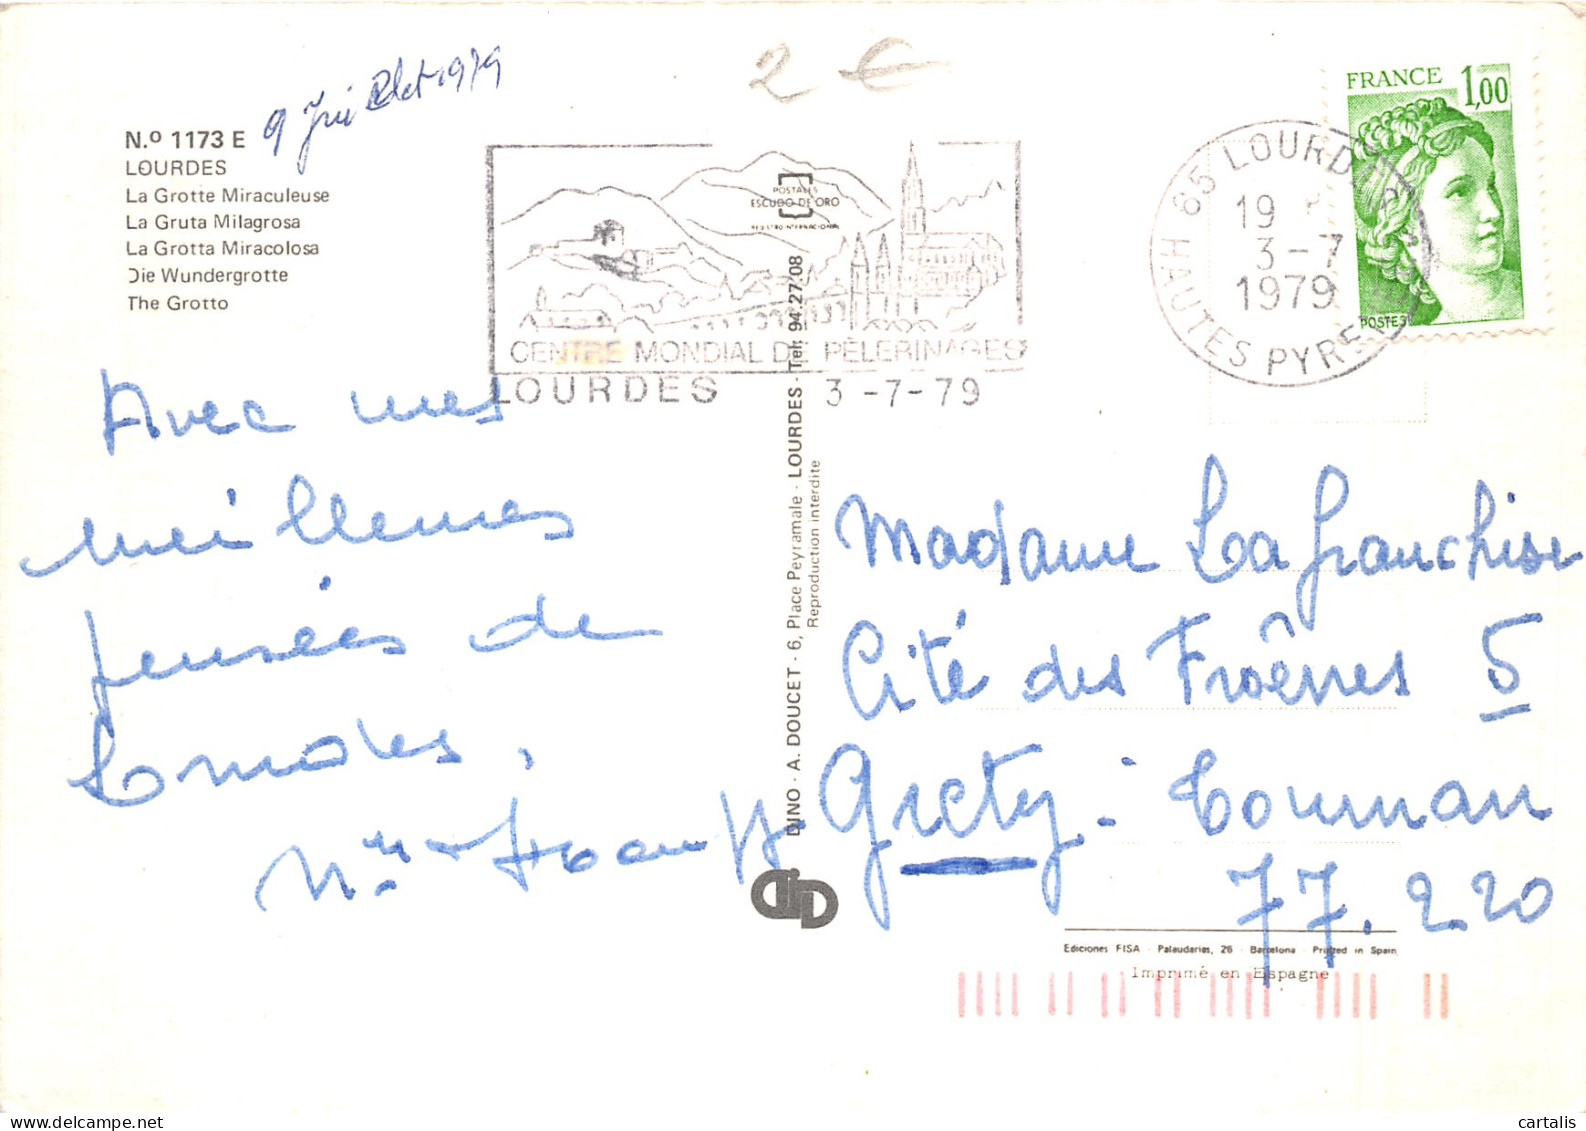 9 Juillet 1979
2 €
N.º 1173 E
LOURDES
La Grotte Miraculeuse
La Gruta Milagrosa
La Grotta Miracolosa
Die Wundergrotte
The Grotto
POSTALES
ESCUDO DE ORO
REGISTRO INTERNACIONAL
CENTRE MONDIAL DE PÈLERINAGES
LOURDES 3-7-79
65 LOURDES
19
3-7
1979
HAUTES PYRENEES
FRANCE 1,00
POSTES
Avec mes
meilleures
pensées de
Lourdes,
DINO - A. DOUCET - 6, Place Peyramale - LOURDES - Tel: 94.27.08
Reproduction interdite
Madame Lafranchise
Cité des Frênes 5
Gretz : Tournan
77.220
Ediciones FISA - Palaudarias, 26 - Barcelona - Printed in Spain
Imprimé en Espagne
cartalis